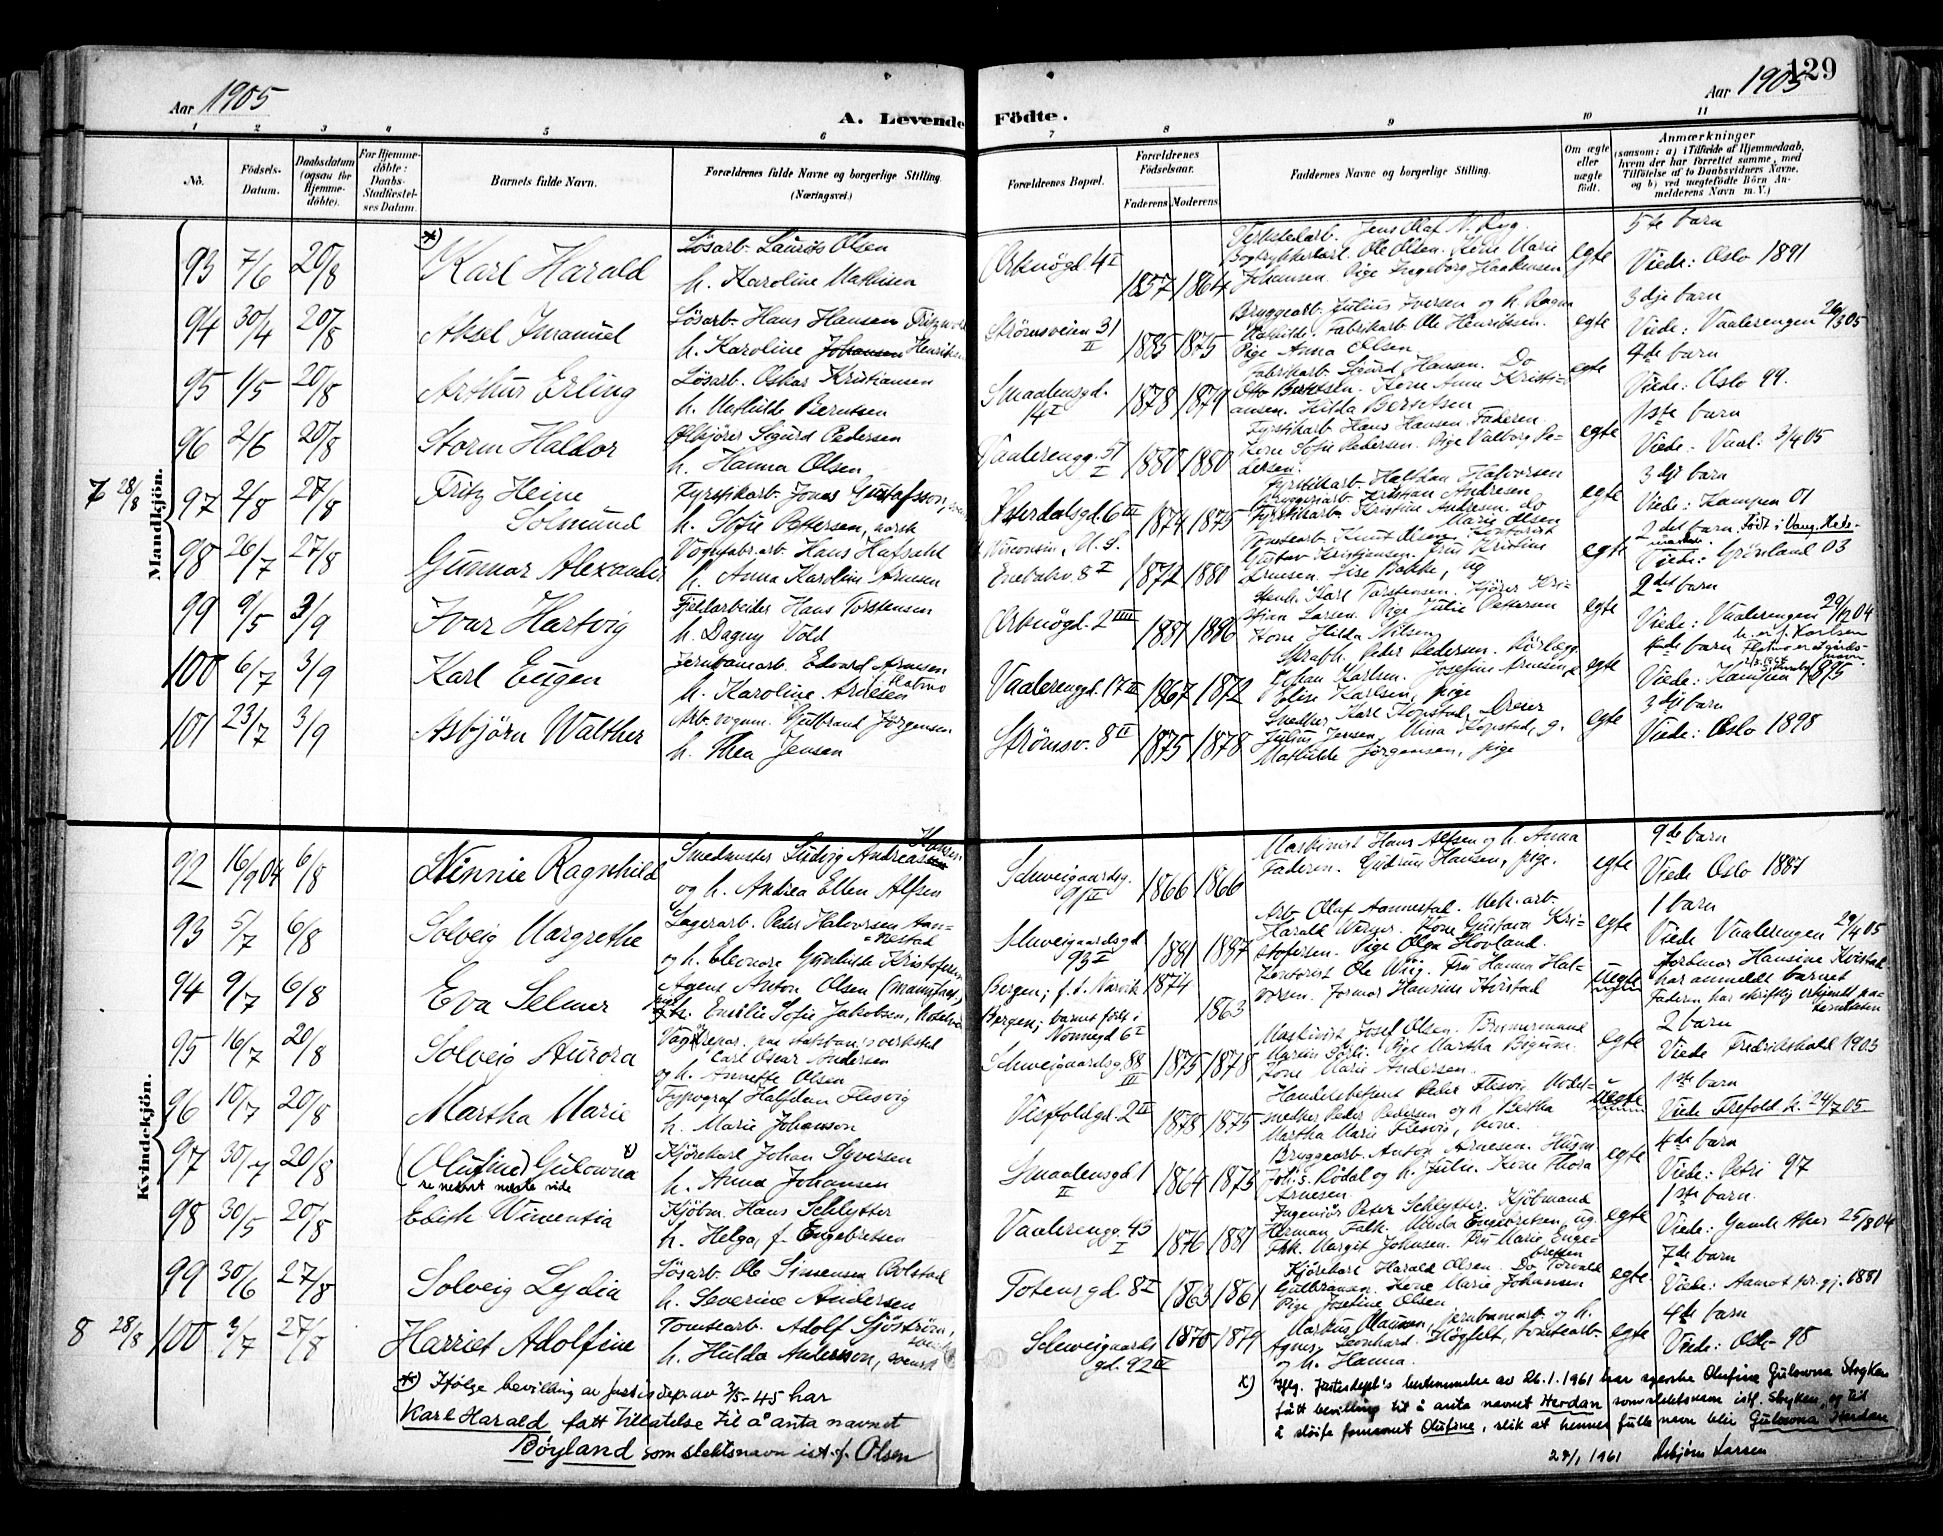 Aar 1905
A. Levende Fødte.
Aar 1905
129
1 2 3 4 5 6 7 8 9 10 11
No.
Fødsels-Datum.
Daabsdatum (ogsaa for Hjemmedøbte).
For Hjemmedøbte: Daabs-Stadfæstelses Datum.
Barnets fulde Navn.
Forældrenes fulde Navne og borgerlige Stilling. (Næringsvei.)
Forældrenes Bopæl.
Forældrenes Fødselsaar.
Faderens. Moderens.
Faddernes Navne og borgerlige Stilling.
Om ægte eller uægte født.
Anmærkninger
(saasom: a) i Tilfælde af Hjemmedaab, hvem der har forrettet samme, med Tilføielse af to Daabsvidners Navne, og b) ved uægtefødte Børn Anmelderens Navn m. V.)
Mandkjøn.
93 7/6 20/8 *) Karl Harald
Løsarb. Laurits Olsen
h. Karoline Mathisen
4 I 1857 1864
Jens Olaf
Ole Olsen.
Johansen. Pige Ingeborg Haakensen
egte
5te barn
Viede: Oslo 1891
94 30/4 20/8 Aksel Imanuel
Løsarb. Hans Hansen
h. Karoline Johansen Henriksen
Strømsveien 31 II 1885 1875
Bryggearb. Julius Iversen og h. Ragna
Mathilde, Fabrikarb. Ole Henriksen.
Pige Anna Olsen
egte
3dje barn
Viede: Vaalerengen 26/3 05
95 1/5 20/8 Arthur Erling
Løsarb. Oskar Kristiansen
h. Mathilde Berntsen
Smaalensgd. 14 I 1878 1879
Fabrikarb. Sigurd Hansen. Do
Otto Berntsen. Kone Anne Kristi-
ansen. Hilda Berntsen
egte
4de barn
Viede: Oslo 99.
96 2/6 20/8 Storm Haldor
Ølkjører Sigurd Pedersen
h. Hanna Olsen
Vaalerengg. 51 I 1880 1880
Fyrstikarb. Hans Hansen. Faderen
Kone Sofie Pedersen. Pige Valborg Pe-
dersen.
egte
1ste barn
Viede. Vaal. 3/4 05
7 28/8
97 2/8 27/8 Fritz Heine Solmund
Fyrstikarb. Jonas Gustafsson,
h. Sofie Pettersen, norsk
Østerdalsgd. 6 III 1874 1875
Fyrstikarb. Halfdan Halvorsen
Bryggeriarb. Kristian Andresen
Fyrstikarb. Kristine Andresen. do
Marie Olsen
egte
3dje barn
Viede: Kampen 01
98 26/7 27/8 Gunnar Alexander
Vognfabr.arb. Hans
h. Anna Karoline Arnesen
Wisconsin, U.S.
Enebakv. 8 I 1872 1880
Tomtearb. Knut Olsen, Kontorist
Gustav Kristiansen. Fru Kristine
Arnesen. Lise Bakke, ug
egte
2det barn Født i Vang, Heds-
marken.
Viede: Grønland 03
99 9/5 3/9 Ivar Hartvig
Fjeldarbeider Hans Torstensen
h. Dagny Vold
2 IIII 1881 1886
Stenh. Karl Torstensen. Kjører Kri-
stian Larsen. Pige Julie Pettersen
Kone Hilda Nilsen
egte
2det barn
Viede: Vaalerengen 29/12 04
100 6/7 3/9 Karl Eugen
Jernbanearb. Edvard Arnesen
h. Karoline Arnesen
Vaalerenggd. 17 II 1867 1872
Peder Pedersen.
Johan Karlsen. Josefine Arnesen,
Elise Karlsen, pige
egte
4de barn
Viede: Kampen 1895
101 23/7 3/9 Asbjørn Walther
Arb. vognm. Gulbrand Jørgensen
h. Thea Jensen
Strømsv. 8 II 1875 1878
Snedker Karl Kopstad. Dreier
Julius Jensen. Mina Kopstad, g.
Mathilde Jørgensen, pige
egte
3dje barn
Viede: Oslo 1898
Kvindekjøn.
92 16/9 04 6/8 Ninnie Ragnhild
Smedmester Ludvig Andreas Hansen
og h. Andrea Ellen Alfsen
Schweigaardsg. 91 II 1866 1866
Maskinist Hans Alfsen og h. Anna
Faderen. Gudrun Hansen, pige.
egte
9de barn
Viede Oslo 1887
93 5/7 6/8 Solveig Margrethe
Lagerarb. Peder Halvorsen Aan-
nestad
og h. Eleonore Gunhilde Kristofersen
Schweigaardsgd 93 I 1881 1887
Arb. Olaf Aannestad. Mek. arb.
Harald Werner. Kone Gustava Kri-
stofersen. Pige Olga Hovland.
egte
1 barn
Viede Vaalerengen 29/4 05
94 9/7 6/8 Eva Selmer
Agent Anton Olsen
Emilie Sofie Jakobsen,
Bergen; f. i. Narvik 1874
Bergen; barnet født i
Nonnegd 6 I 1863
Kontorist Ole Wiig. Fru Hanna Hal-
vorsen. Jormor Hansine Kvistad
uegte
Jordmor Hansine Kvistad
har anmeldt barnet
Faderen har skriftlig erkjendt pa-
terniteten
95 16/7 20/8 Solveig Aurora
Vognrepar. paa statsban.s verksted
Carl Oscar Andersen
og h. Annette Olsen
Schweigaardsg. 88 III 1875 1878
Maskinist Josef Olsen. Tømmermand
Marius Sørli. Pige Martha Bigum.
Kone Marie Andersen.
egte
2 barn
Viede Fredrikshald 1903
96 10/7 20/8 Martha Marie
Typograf Halfdan Flesvig
h. Marie Johanson
Vestfoldgd. 2 II 1878 1875
Handelsbetjent Peder Flesvig. Model-
snedker Peder Pedersen og h. Bertha
Martha Marie Flesvig, kone.
uegte
1ste barn
Viede Trefold. k. 24/7 05.
97 30/7 20/8 (Olufine) Gulowna x)
se nederst næste side
Kjørekarl Johan Syversen
h. Anna Johansen
Smaalensgd. 1 II 1864 1873
Bryggearb. Anton Arnesen. Husm
Joh.s. Rødal og h. Julie. Kone Thora
Arnesen
egte
4de barn
Viede: Petri 97
98 30/5 20/8 Edith Wincentia
Kjøbm. Hans Schlytter
h. Helga, f. Engebretsen
Vaalerengg. 45 I 1876 1881
Ingeniør Peter Schlytter. Kjøbmand
Herman Falk. Minda Engebretsen, ug.
Frk. Margit Johnsen. Fru Marie Enge-
bretsen
egte
1ste barn.
Viede: Gamle Aker 25/8 04
99 30/6 27/8 Solveig Lydia
Løsarb. Ole Simensen Bolstad
h. Severine Andersen
Totensgd. 8 I 1863 1861
Kjørekarl Harald Olsen. Do Torvald
Gulbransen. Kone Marie Johansen
Pige Josefine Olsen
egte
7de barn
Viede: Aamot pr.gj. 1881
8 28/8
100 3/7 27/8 Harriet Adolfine
Tomtearb. Adolf Sjöström, svensk
h. Hulda Andersson, svensk
Schweigaards
gd. 92 II 1876 1879
Markus Clausen, jernbanearb. og h.
Agnes. Leonhard Högfelt, tomtearb.
og h. Hanna.
egte
4de barn
Viede: Oslo 98
*) Ifølge bevilling av Justisdep. av 3/5-45 har
Karl Harald fått tillatelse til å anta navnet
Bøyland som slektsnavn ist. f. Olsen
x) Iflg. Justisdept's bestemmelse av 26.1.1961 har Olufine Gulowna Stryken
fått bevilling til å anta navnet Herdan som slektsnavn istf. Stryken, og til
å sløife fornavnet Olufine, slik at hennes fulle navn blir Gulowna Herdan
28/1 1961 Asbjørn Larsen